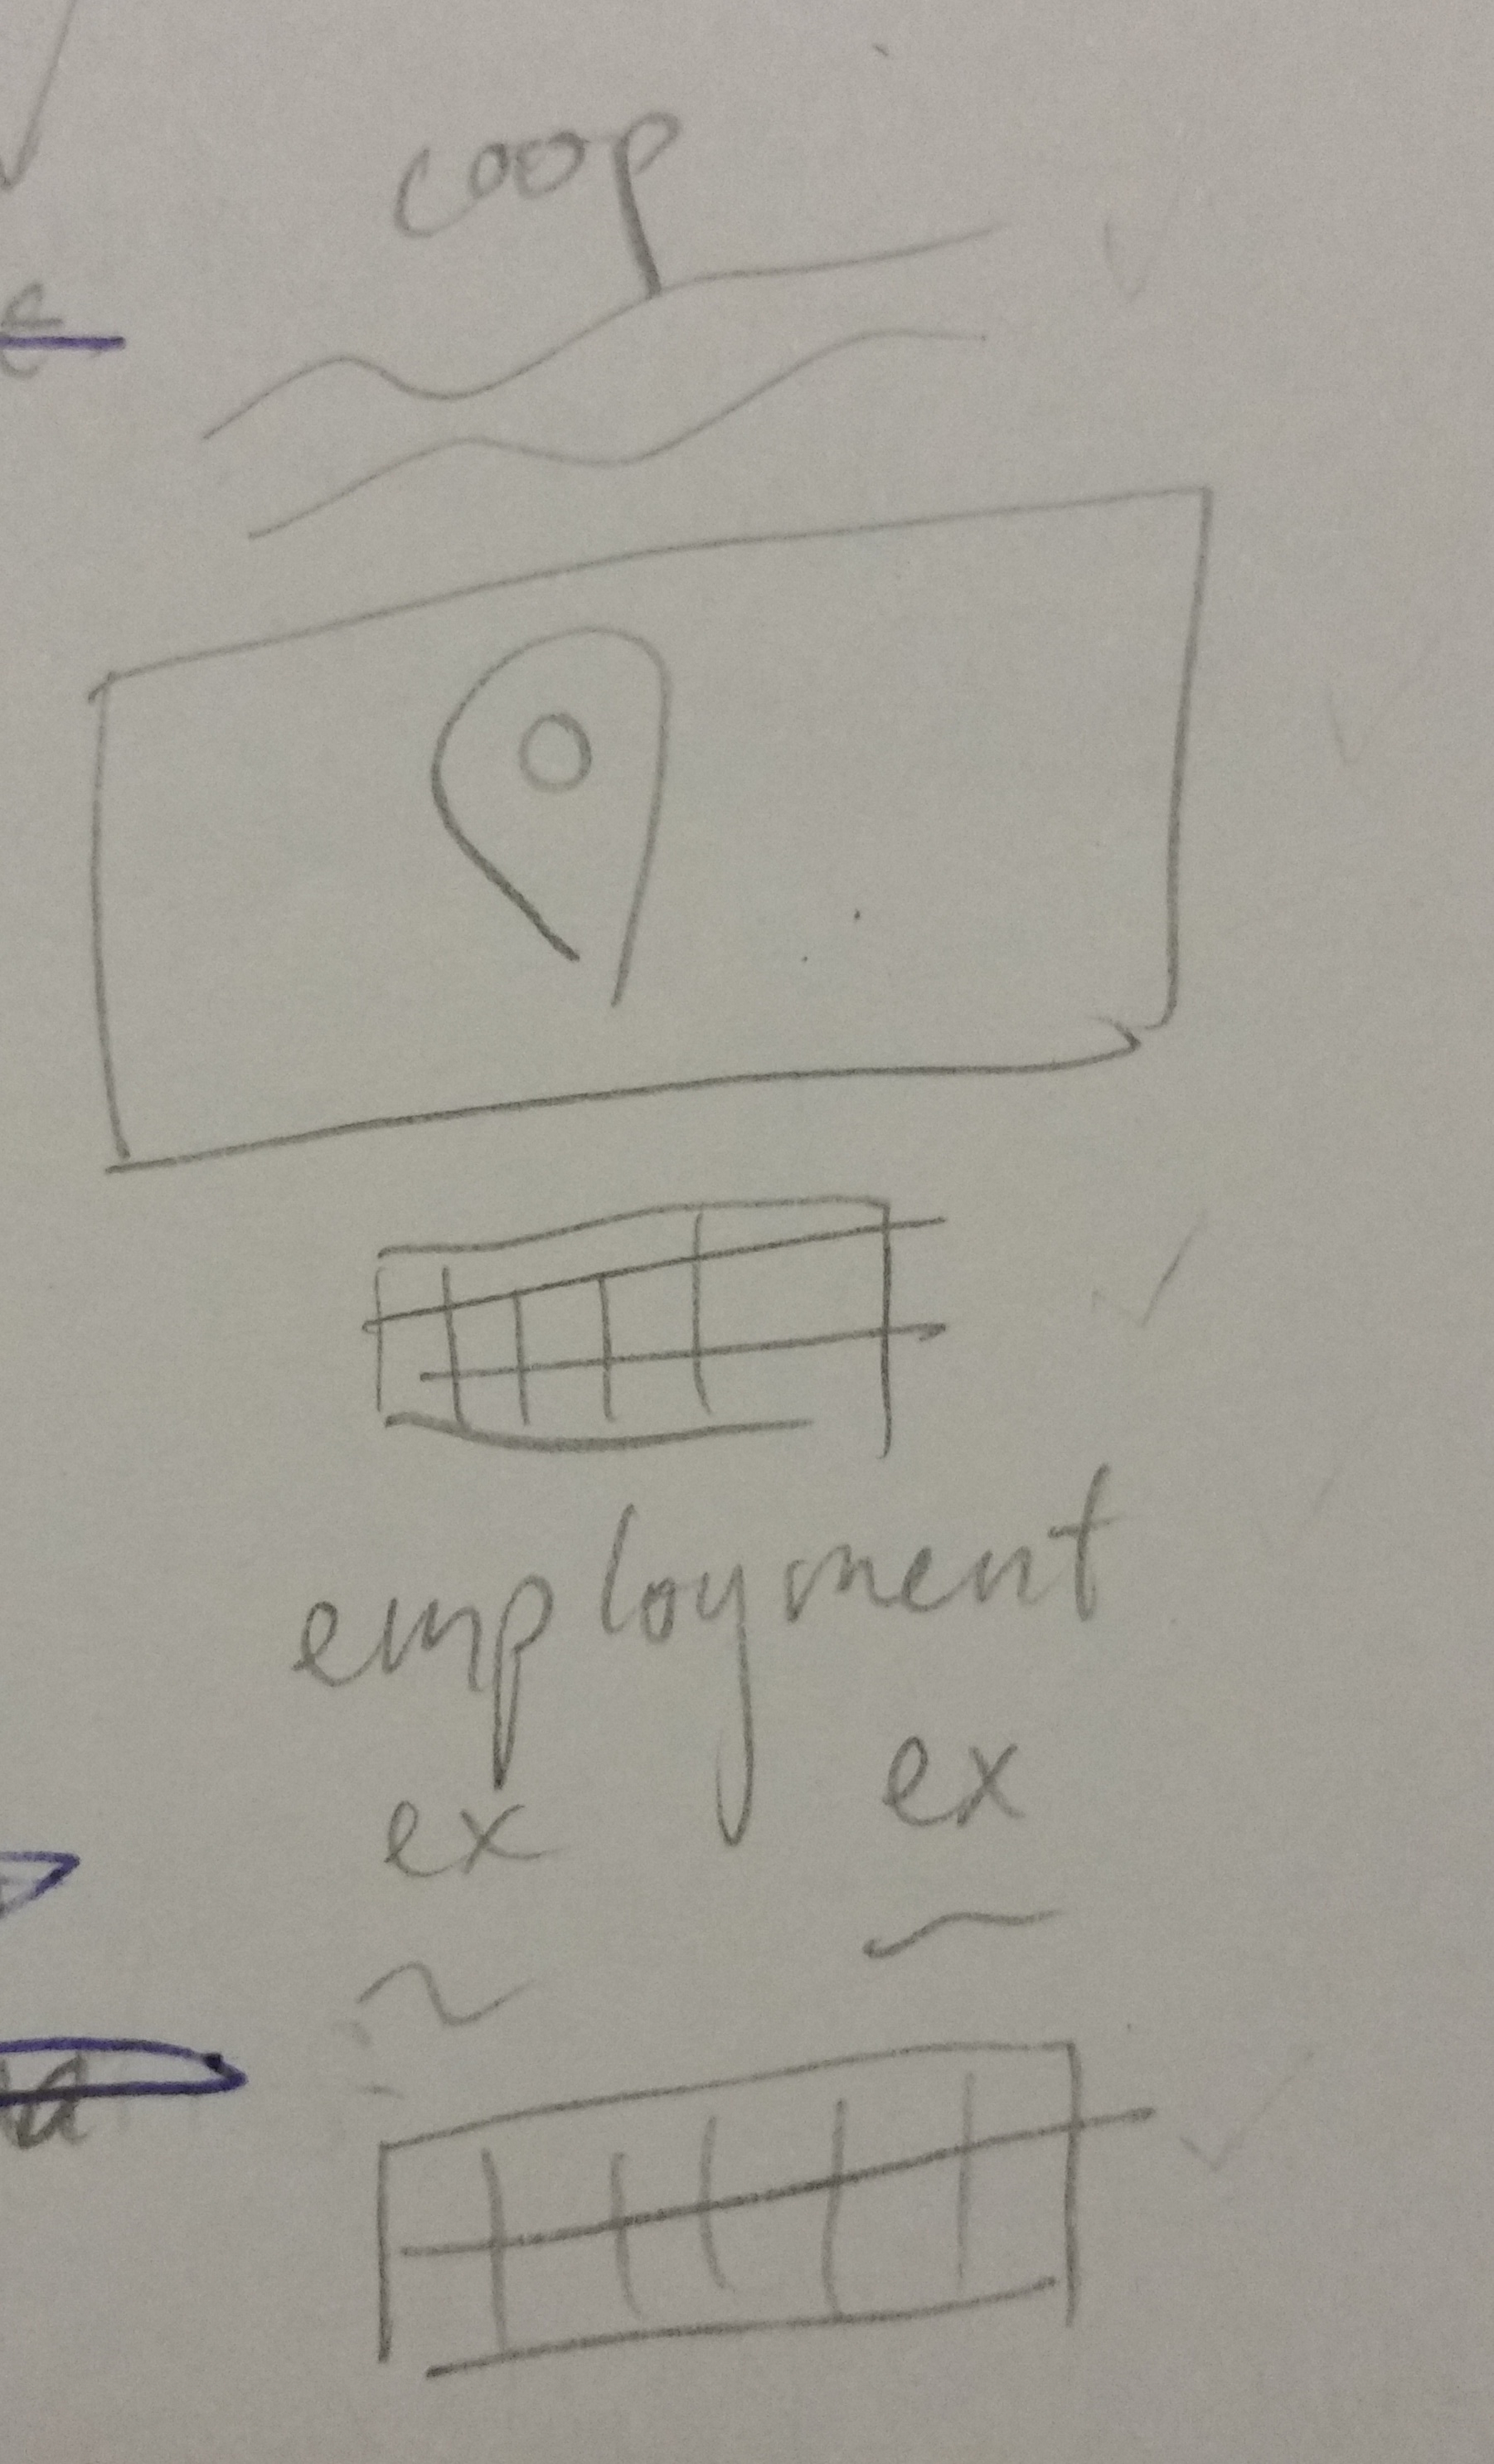 coop
employment
ex ex